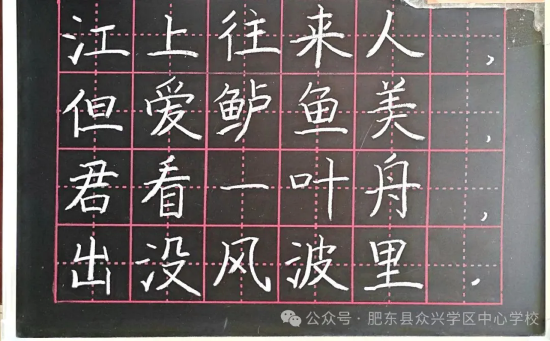 江上往来人，
但爱鲈鱼美，
君看一叶舟，
出没风波里.
公众号·肥东县众兴学区中心学校